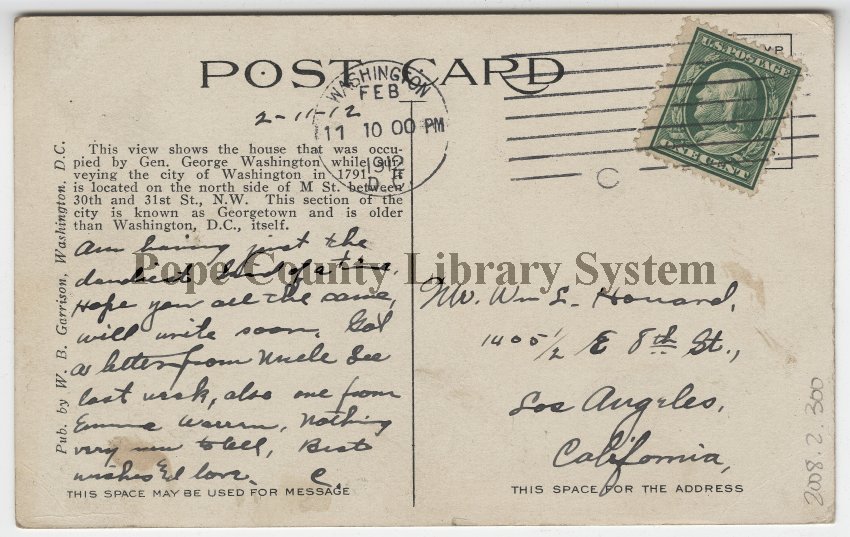 POST CARD
2-11-12
WASHINGTON
FEB
11 10 00 PM
1912
D.
U.S. POSTAGE
ONE CENT
C
This view shows the house that was occu-
pied by Gen. George Washington while sur-
veying the city of Washington in 1791. It
is located on the north side of M St. between
30th and 31st St., N.W. This section of the
city is known as Georgetown and is older
than Washington, D.C., itself.
Pub. by W. B. Garrison, Washington, D.C.
Am having just the
dandiest kind of a time,
Hope you all the same,
will write soon. Got
a letter from Uncle Lee
last week, also one from
Emma Warren, Nothing
very new to tell, Best
wishes & love. C.
THIS SPACE MAY BE USED FOR MESSAGE
Mr. Wm L. Howard,
1405 1/2 E 8th St.,
Los Angeles,
California,
THIS SPACE FOR THE ADDRESS
2008.2.300
Pope County Library System